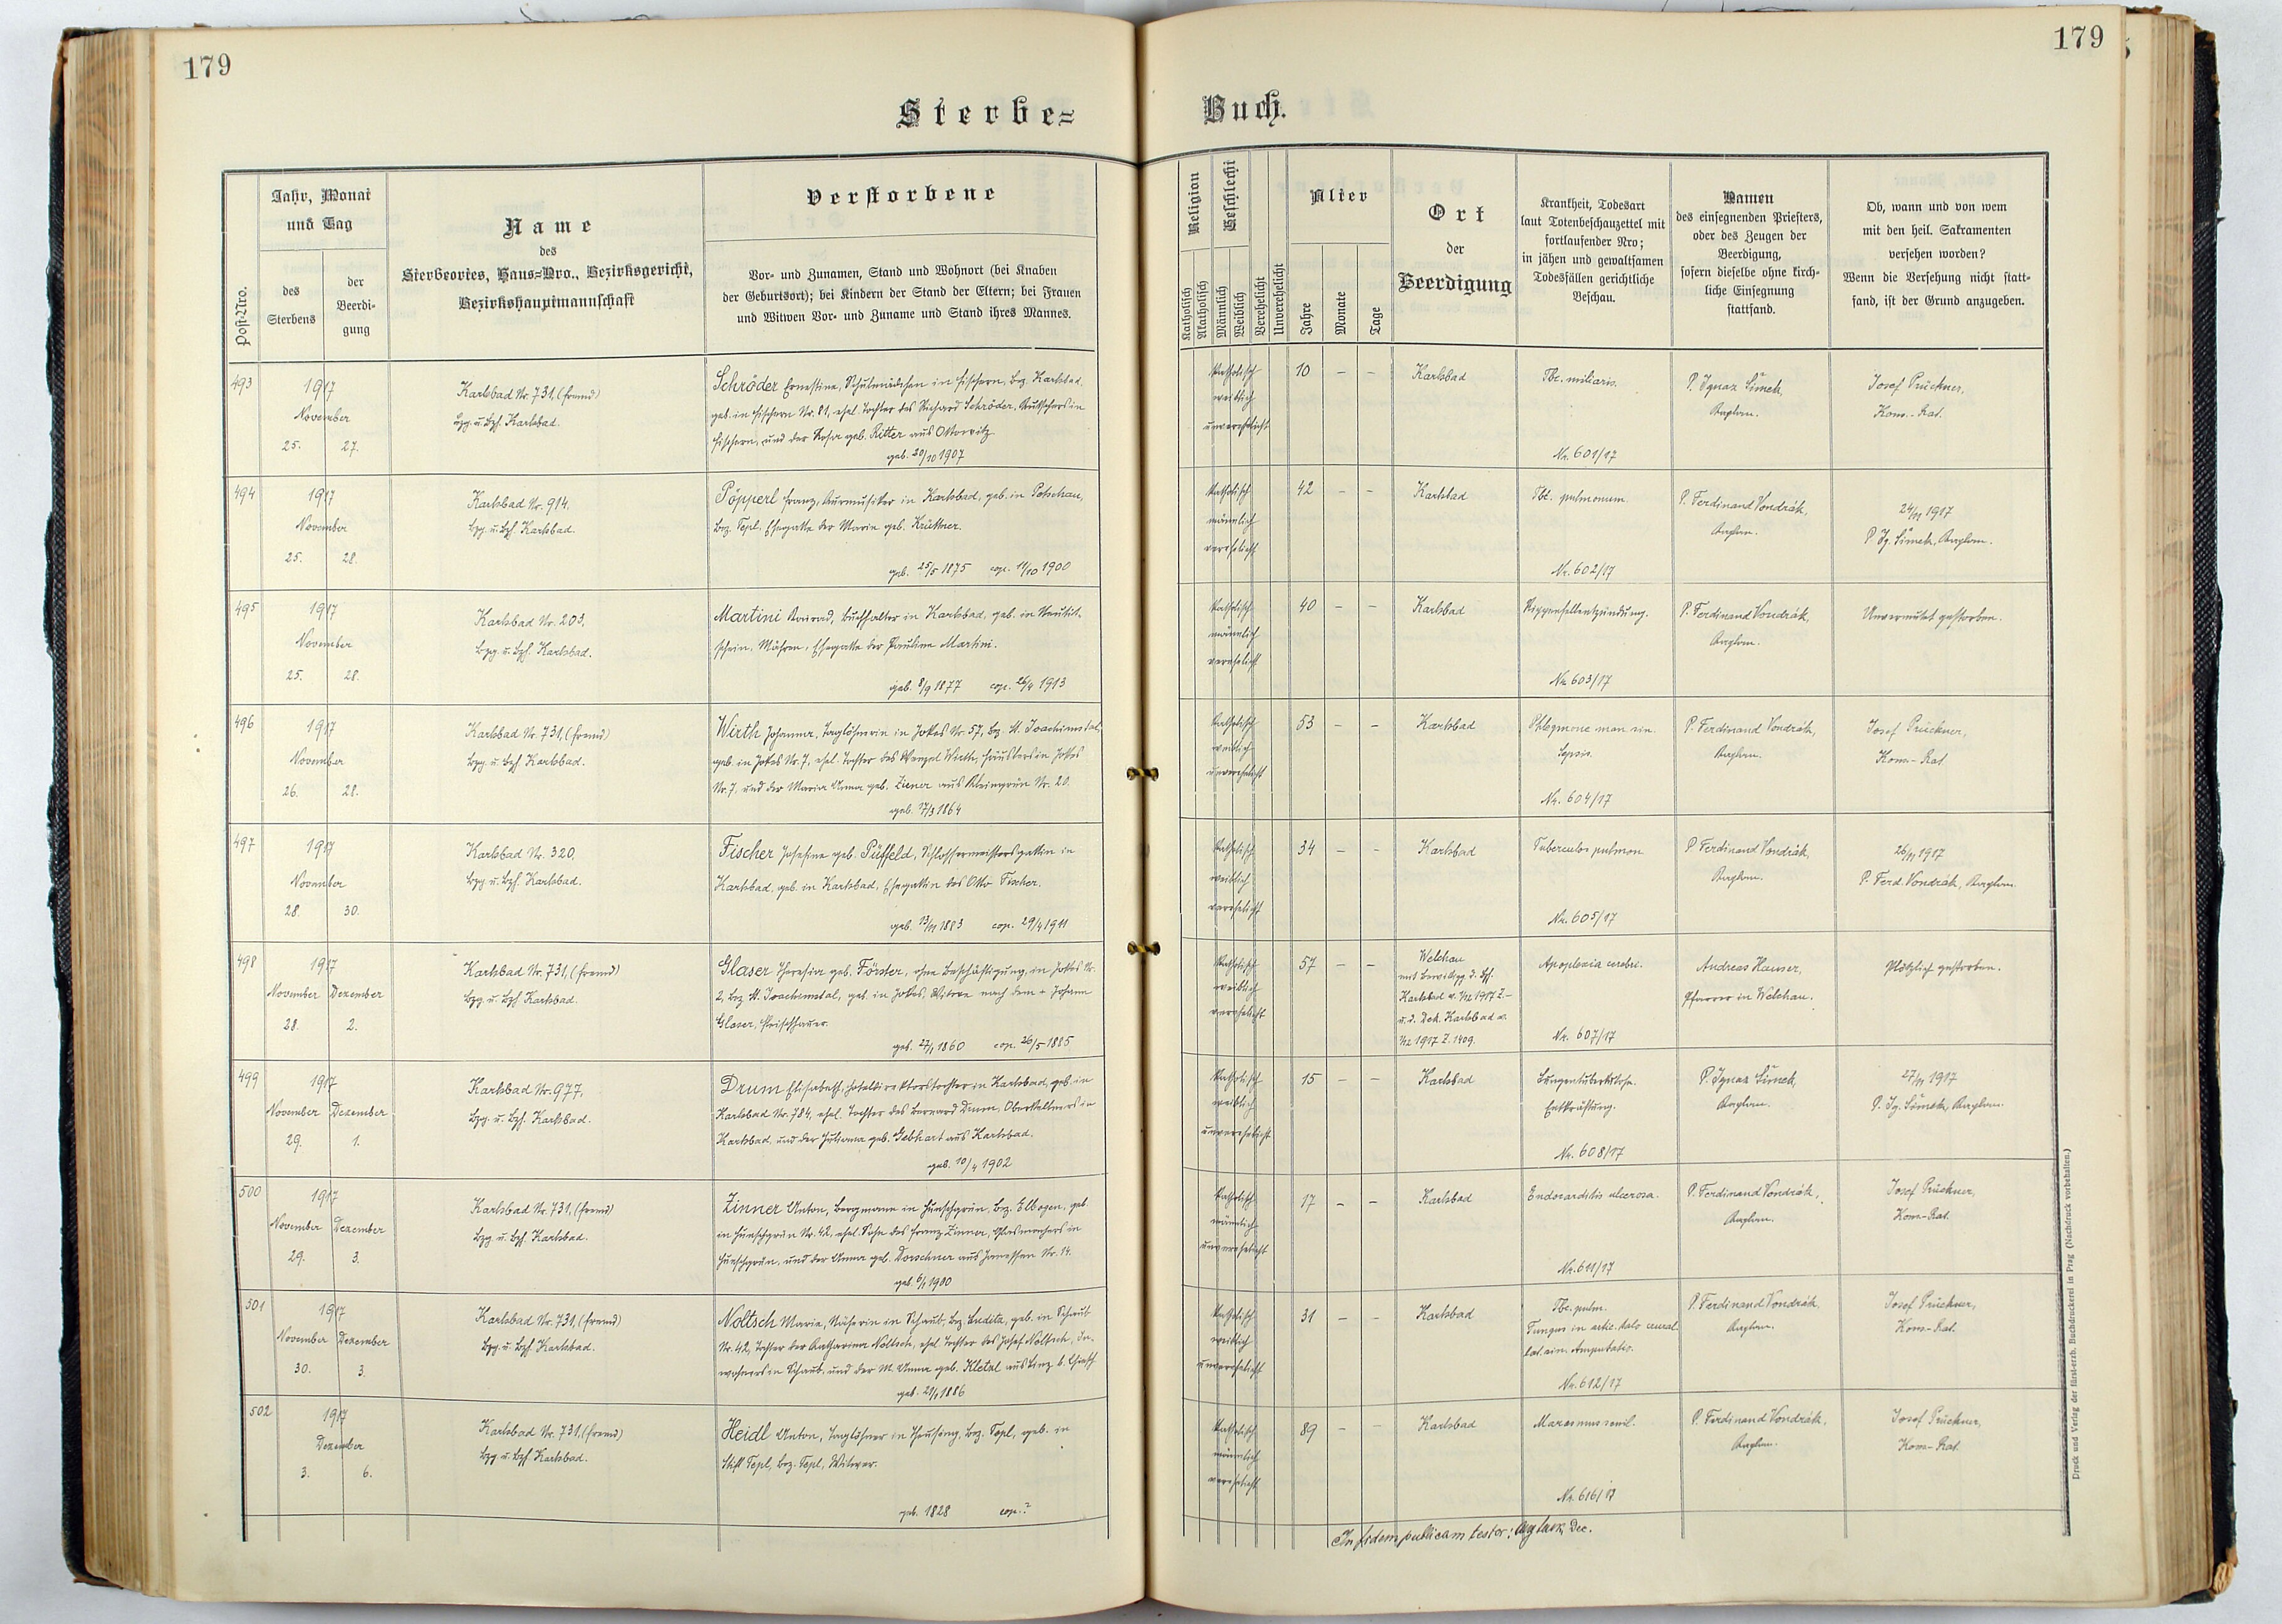 179
179
Sterbe=
Buch.
Post-Nro.
Jahr, Monat
und Tag
des
Sterbens
der
Beerdi-
gung
Name
des
Sterbeortes, Haus=Nro., Bezirksgericht,
Bezirkshauptmannschaft
Verstorbene
Vor- und Zunamen, Stand und Wohnort (bei Knaben
der Geburtsort); bei Kindern der Stand der Eltern; bei Frauen
und Witwen Vor- und Zuname und Stand ihres Mannes.
Religion
Katholisch
Akatholisch
Geschlecht
Männlich
Weiblich
Verehelicht
Unverehelicht
Alter
Jahre
Monate
Tage
Ort
der
Beerdigung
Krankheit, Todesart
laut Totenbeschauzettel mit
fortlaufender Nro;
in jähen und gewaltsamen
Todesfällen gerichtliche
Beschau.
Namen
des einsegnenden Priesters,
oder des Zeugen der
Beerdigung,
sofern dieselbe ohne kirch-
liche Einsegnung
stattfand.
Ob, wann und von wem
mit den heil. Sakramenten
versehen worden?
Wenn die Versehung nicht statt-
fand, ist der Grund anzugeben.
493
1917
November
25. 27.
Karlsbad Nr. 731, (fremd)
Bzg. u. Bzh. Karlsbad.
Schröder Ernestine, Schulmädchen in Fischern, Bez. Karlsbad,
geb. in Fischern Nr. 81, ehel. Tochter des Richard Schröder, Kutschers in
Fischern, und der Rosa geb. Ritter aus Ottowitz.
geb. 20/10 1907
katholisch
weiblich
unverehelicht
10 - -
Karlsbad
Tbc. miliaris.
Nr. 601/17
P. Ignaz Šimek,
Kaplan.
Josef Prückner,
Kons.-Rat.
494
1917
November
25. 28.
Karlsbad Nr. 914.
Bzg. u. Bzh. Karlsbad.
Pöpperl Franz, Kurmusiker in Karlsbad, geb. in Petschau,
Bez. Tepl, Ehegatte der Marie geb. Krüttner.
geb. 25/5 1875 cop. 11/10 1900
katholisch
männlich
verehelicht
42 - -
Karlsbad
Tbc. pulmonum.
Nr. 602/17
P. Ferdinand Vondrák,
Kaplan.
24/11 1917
P. Ig. Šimek, Kaplan.
495
1917
November
25. 28.
Karlsbad Nr. 203.
Bzg. u. Bzh. Karlsbad.
Martini Konrad, Buchhalter in Karlsbad, geb. in Neutit-
schein, Mähren, Ehegatte der Pauline Martini.
geb. 8/9 1877 cop. 26/4 1913
katholisch
männlich
verehelicht
40 - -
Karlsbad
Rippenfellentzündung.
Nr. 603/17
P. Ferdinand Vondrák,
Kaplan.
Unvermutet gestorben.
496
1917
November
26. 28.
Karlsbad Nr. 731, (fremd)
Bzg. u. Bzh. Karlsbad.
Wirth Johanna, Taglöhnerin in Jokes Nr. 57, Bez. St. Joachimstal,
geb. in Jokes Nr. 7, ehel. Tochter des Wenzel Wirth, Häuslers in Jokes
Nr. 7, und der Maria Anna geb. Ziener aus Kleingrün Nr. 20.
geb. 17/3 1864
katholisch
weiblich
unverehelicht
53 - -
Karlsbad
Phlegmone man. sin.
Sepsis.
Nr. 604/17
P. Ferdinand Vondrák,
Kaplan.
Josef Prückner,
Kons.-Rat
497
1917
November
28. 30.
Karlsbad Nr. 320.
Bzg. u. Bzh. Karlsbad.
Fischer Josefine geb. Püffeld, Schlossermeistersgattin in
Karlsbad, geb. in Karlsbad, Ehegattin des Otto Fischer.
geb. 13/11 1883 cop. 29/4 1911
katholisch
weiblich
verehelicht
34 - -
Karlsbad
Tuberculos. pulmon.
Nr. 605/17
P. Ferdinand Vondrák,
Kaplan.
26/11 1917
P. Ferd. Vondrák, Kaplan.
498
1917
November Dezember
28. 2.
Karlsbad Nr. 731, (fremd)
Bzg. u. Bzh. Karlsbad.
Glaser Theresia geb. Förster, ohne Beschäftigung, in Jokes Nr.
2, Bez. St. Joachimstal, geb. in Jokes, Witwe nach dem + Johann
Glaser, Fleischhauer.
geb. 27/1 1860 cop. 26/5 1885
katholisch
weiblich
verehelicht
57 - -
Welchau
mit Bewilligg. d. Bzh.
Karlsbad v. 1/12 1917 Z.-
u. d. Dek. Karlsbad v.
1/12 1917 Z. 1409.
Apoplexia cerebri.
Nr. 607/17
Andreas Hauser,
Pfarrer in Welchau.
Plötzlich gestorben.
499
1917
November Dezember
29. 1.
Karlsbad Nr. 977.
Bzg. u. Bzh. Karlsbad.
Drum Elisabeth, Hoteldirektorstochter in Karlsbad, geb. in
Karlsbad Nr. 784, ehel. Tochter des Bernard Drum, Oberkellners in
Karlsbad, und der Juliana geb. Gebhart aus Karlsbad.
geb. 10/4 1902
katholisch
weiblich
unverehelicht
15 - -
Karlsbad
Lungentuberkulose.
Entkräftung.
Nr. 608/17
P. Ignaz Šimek,
Kaplan.
27/11 1917
P. Ig. Šimek, Kaplan.
500
1917
November Dezember
29. 3.
Karlsbad Nr. 731, (fremd)
Bzg. u. Bzh. Karlsbad.
Zinner Anton, Bergmann in Hunschgrün, Bez. Elbogen, geb.
in Hunschgrün Nr. 42, ehel. Sohn des Franz Zinner, Glasmachers in
Hunschgrün, und der Anna geb. Dorschner aus Janessen Nr. 14.
geb. 6/1 1900
katholisch
männlich
unverehelicht
17 - -
Karlsbad
Endocarditis ulcerosa.
Nr. 611/17
P. Ferdinand Vondrák,
Kaplan.
Josef Prückner,
Kons.-Rat.
501
1917
November Dezember
30. 3.
Karlsbad Nr. 731, (fremd)
Bzg. u. Bzh. Karlsbad.
Noltsch Maria, Näherin in Schaub, Bez. Luditz, geb. in Schaub
Nr. 42, Tochter der Katharina Noltsch, ehel. Tochter des Josef Noltsch, In-
wohners in Schaub, und der M. Anna geb. Kletzl aus
geb. 21/1 1886
katholisch
weiblich
unverehelicht
31 - -
Karlsbad
Tbc. pulm.
Fungus in artic. talo crural.
lat. sin. Amputatio.
Nr. 612/17
P. Ferdinand Vondrák,
Kaplan.
Josef Prückner,
Kons.-Rat.
502
1917
Dezember
3. 6.
Karlsbad Nr. 731, (fremd)
Bzg. u. Bzh. Karlsbad.
Heidl Anton, Taglöhner in Theusing, Bez. Tepl, geb. in
Stift Tepl, Bez. Tepl, Witwer.
geb. 1828 cop. ?
katholisch
männlich
verehelicht
89 - -
Karlsbad
Marasmus senil.
Nr. 616/17
P. Ferdinand Vondrák,
Kaplan.
Josef Prückner,
Kons.-Rat.
In fidem publicam testor: Dec.
Druck und Verlag der fürst-erzb. Buchdruckerei in Prag (Nachdruck vorbehalten.)